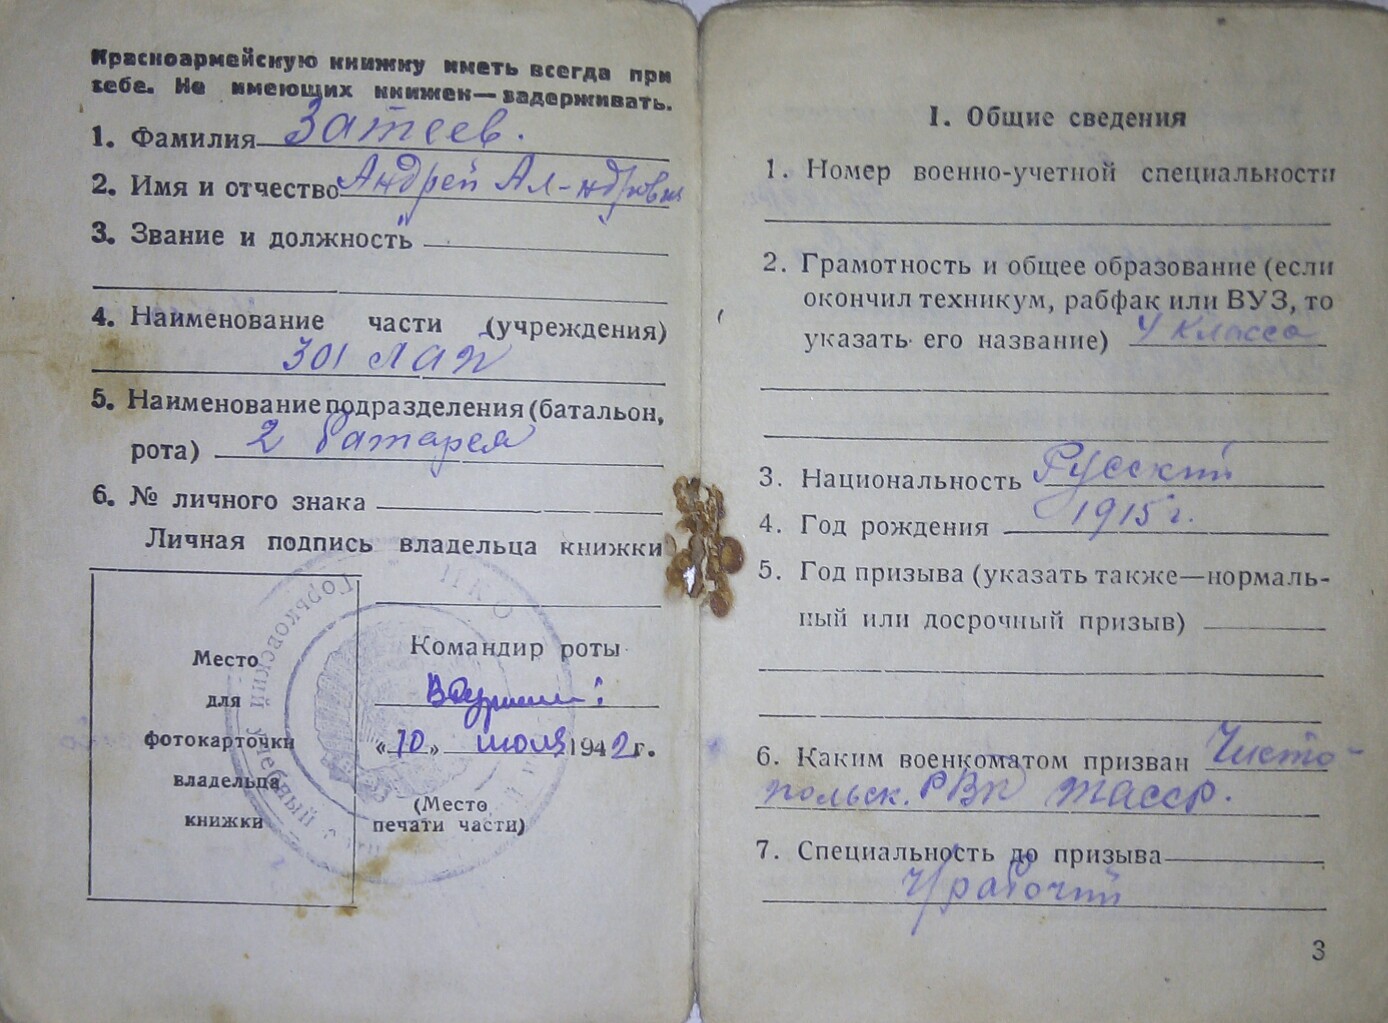 Красноармейскую книжку иметь всегда при
себе. Не имеющих книжек—задерживать.
1. Фамилия Затеев.
2. Имя и отчество Андрей Ал-ндрович
3. Звание и должность
4. Наименование части (учреждения)
301 ЛАП
5. Наименование подразделения (батальон,
рота) 2 батарея
6. № личного знака
Личная подпись владельца книжки
Место
для
фотокарточки
владельца
книжки
Командир роты
«10» июля 1942г.
(Место
печати части)
НКО
Горьковский учебный
I. Общие сведения
1. Номер военно-учетной специальности
2. Грамотность и общее образование (если
окончил техникум, рабфак или ВУЗ, то
указать его название) 4 класса
3. Национальность Русский
4. Год рождения 1915 г.
5. Год призыва (указать также—нормаль-
ный или досрочный призыв)
6. Каким военкоматом призван Чисто-
польск. РВК ТАССР.
7. Специальность до призыва
Ч/рабочий
3